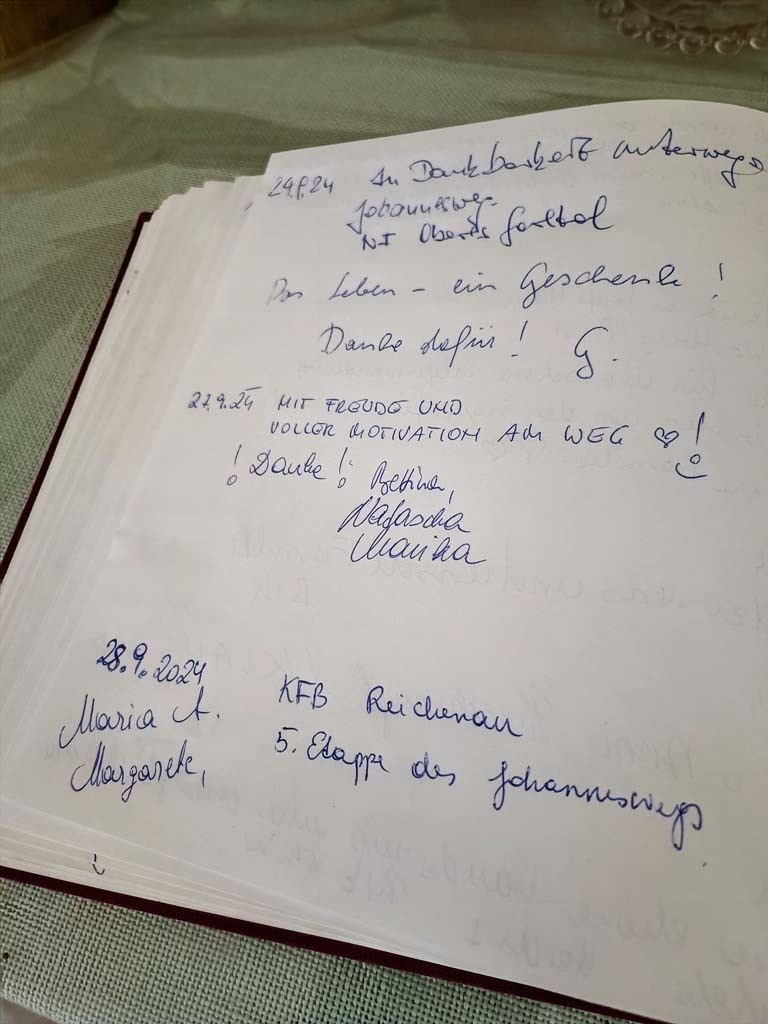 24.9.24 In Dankbarkeit unterwegs
Johannesweg
Das Leben - ein Geschenk!
Danke dafür! G.
27.9.24 MIT FREUDE UND
VOLLER MOTIVATION AM WEG ♡!
! Danke! Bettina,
Natascha
Marika
28.9.2024
KFB Reichenau
Maria A.
5. Etappe des Johanneswegs
Margarete,